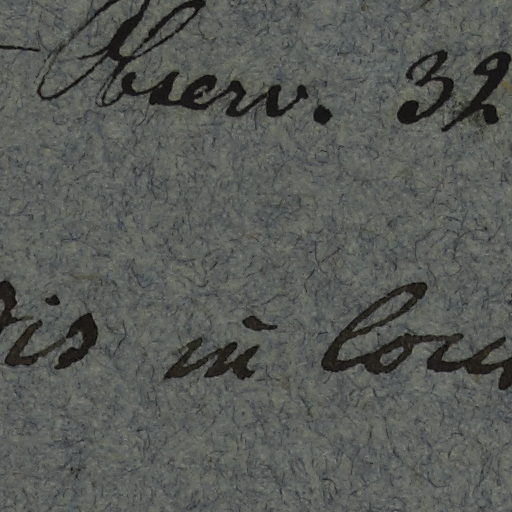 Observ. 32
is in lou